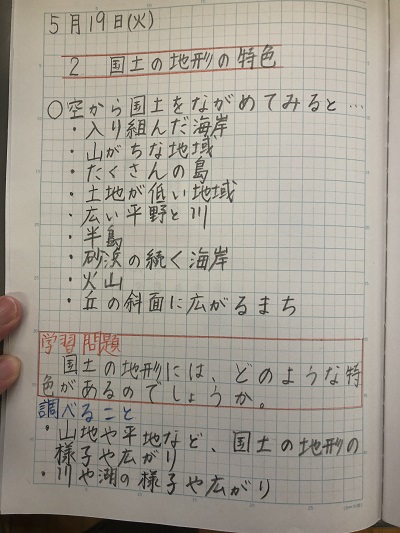 5月19日(火)
2 国土の地形の特色
○空から国土をながめてみると…
・入り組んだ海岸
・山がちな地域
・たくさんの島
・土地が低い地域
・広い平野と川
・半島
・砂浜の続く海岸
・火山
・丘の斜面に広がるまち
学習問題
国土の地形には、どのような特
色があるのでしょうか。
調べること
・山地や平地など、国土の地形の
様子や広がり
・川や湖の様子や広がり